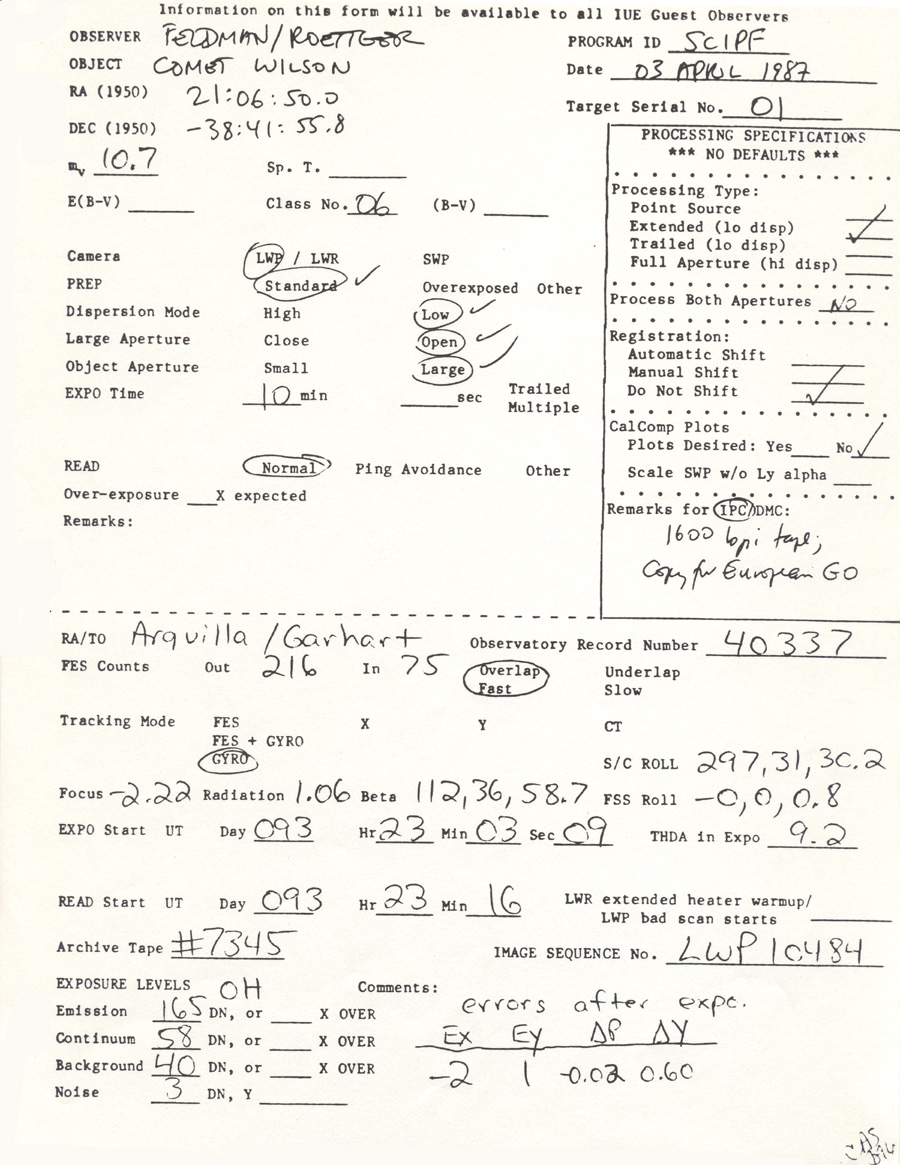 Information on this form will be available to all IUE Guest Observers
OBSERVER FELDMAN/ROETTGER
PROGRAM ID SCIPF
OBJECT COMET WILSON
Date 03 APRIL 1987
RA (1950) 21:06:50.0
Target Serial No. 01
DEC (1950) -38:41:55.8
mv 10.7 Sp. T. ____
E(B-V) ____ Class No. 06 (B-V) ____
Camera LWP / LWR SWP
PREP Standard ✓ Overexposed Other
Dispersion Mode High Low ✓
Large Aperture Close Open ✓
Object Aperture Small Large ✓
EXPO Time 10 min ____ sec Trailed
Multiple
READ Normal Ping Avoidance Other
Over-exposure ___X expected
Remarks:
PROCESSING SPECIFICATIONS
*** NO DEFAULTS ***
Processing Type:
Point Source ____
Extended (lo disp) ✓
Trailed (lo disp) ____
Full Aperture (hi disp) ____
Process Both Apertures NO
Registration:
Automatic Shift ____
Manual Shift ____
Do Not Shift ✓
CalComp Plots
Plots Desired: Yes____ No ✓
Scale SWP w/o Ly alpha ____
Remarks for IPC/DMC:
1600 bpi tape;
Copy for European GO
RA/TO Arquilla/Garhart Observatory Record Number 40337
FES Counts Out 216 In 75 Overlap Underlap
Fast Slow
Tracking Mode FES X Y CT
FES + GYRO
GYRO S/C ROLL 297,31,30.2
Focus -2.22 Radiation 1.06 Beta 112,36,58.7 FSS Roll -0,0,0.8
EXPO Start UT Day 093 Hr 23 Min 03 Sec 09 THDA in Expo 9.2
READ Start UT Day 093 Hr 23 Min 16 LWR extended heater warmup/
LWP bad scan starts ____
Archive Tape #7345 IMAGE SEQUENCE No. LWP 10484
EXPOSURE LEVELS OH Comments:
errors after expo.
Emission 165 DN, or ____ X OVER
Ex Ey ΔP ΔY
Continuum 58 DN, or ____ X OVER
Background 40 DN, or ____ X OVER
-2 1 -0.02 0.60
Noise 3 DN, Y ____